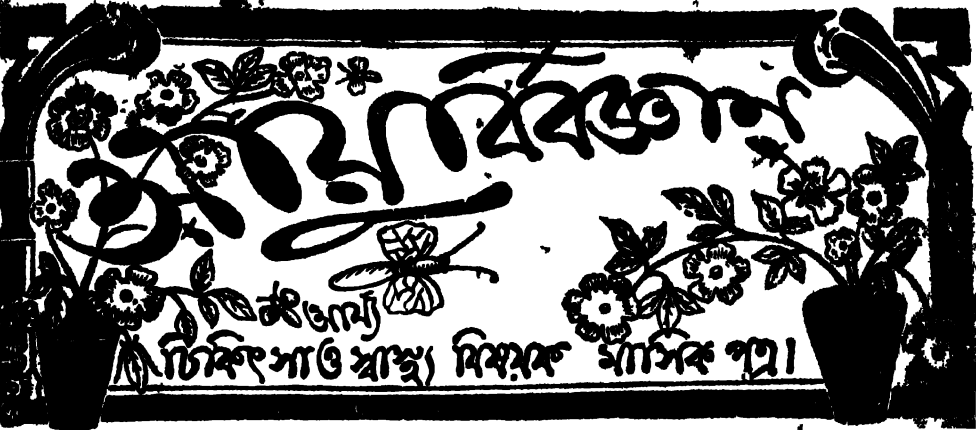 আয়ুর্বিজ্ঞান
চিকিৎসা ও স্বাস্থ্য বিষয়ক মাসিক পত্র।